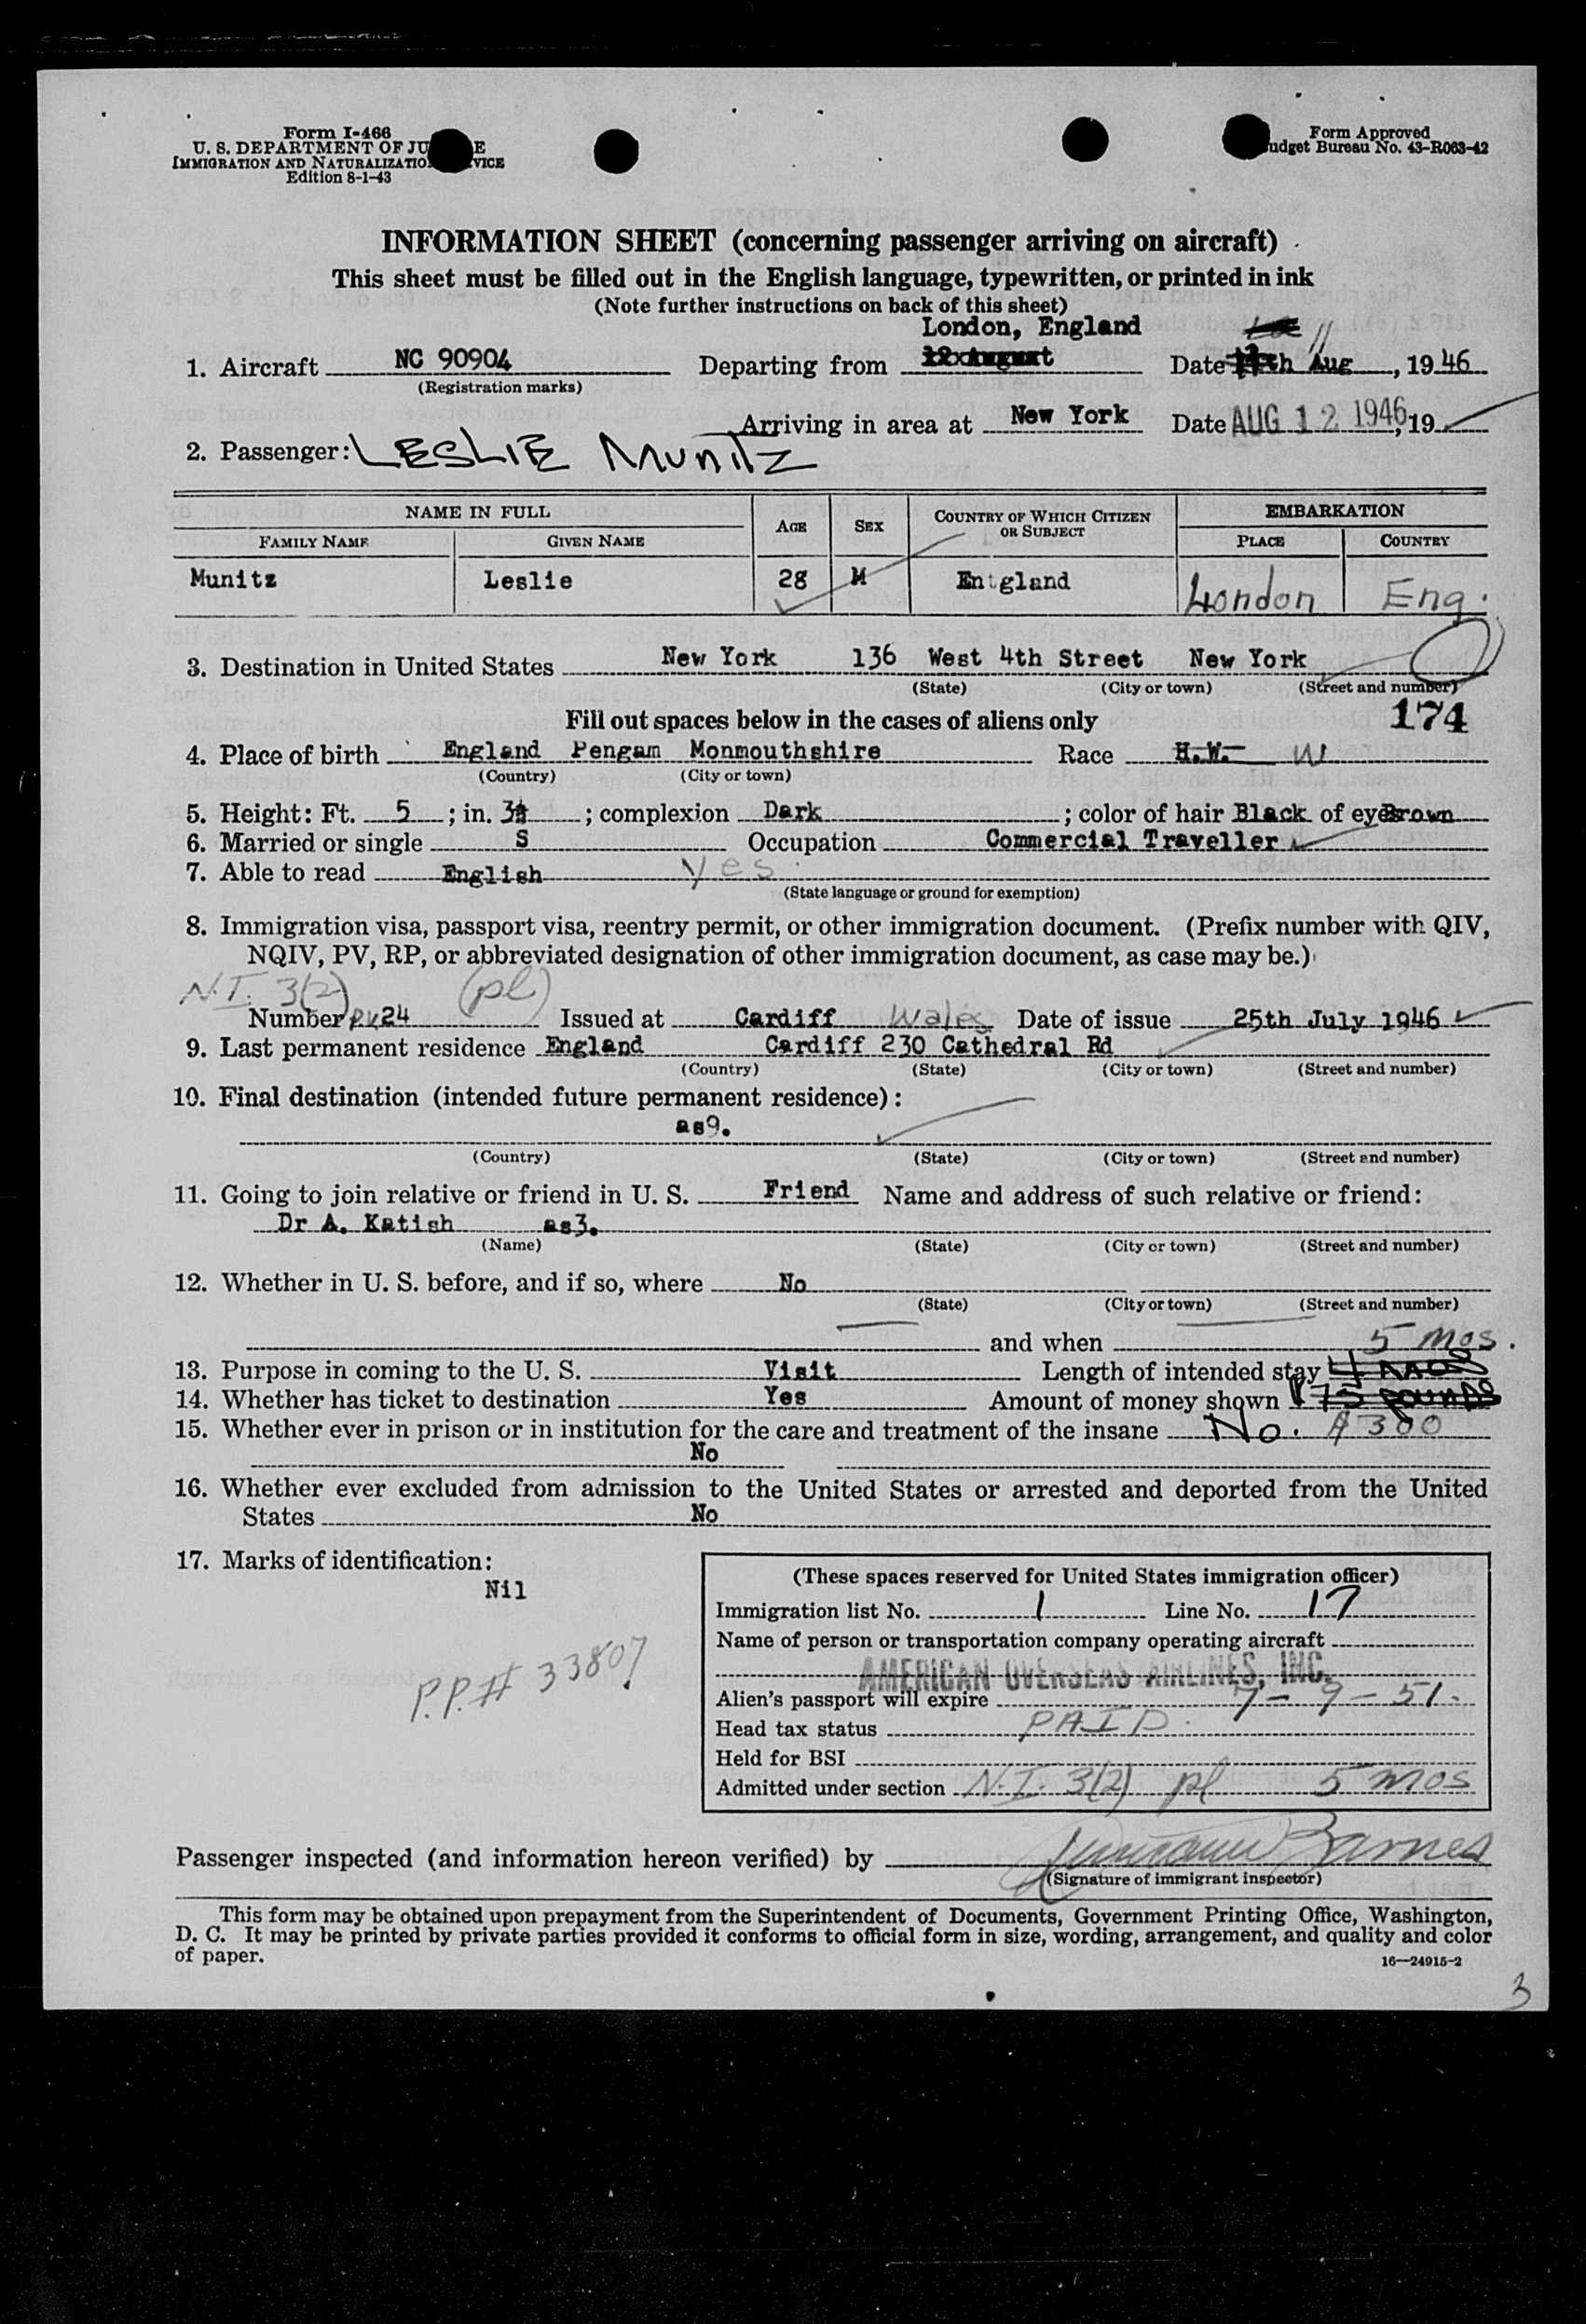 Form I-466
U. S. DEPARTMENT OF JU E
IMMIGRATION AND NATURALIZATIO VICE
Edition 8-1-43
Form Approved
udget Bureau No. 43-R063-42
INFORMATION SHEET (concerning passenger arriving on aircraft)
This sheet must be filled out in the English language, typewritten, or printed in ink
(Note further instructions on back of this sheet)
London, England
1. Aircraft NC 90904 Departing from Date 11 Aug, 1946
(Registration marks)
Arriving in area at New York Date AUG 12 1946, 19
2. Passenger: LESLIE MUNITZ
NAME IN FULL AGE SEX COUNTRY OF WHICH CITIZEN OR SUBJECT EMBARKATION
FAMILY NAME GIVEN NAME PLACE COUNTRY
Munitz Leslie 28 M Entgland London Eng.
3. Destination in United States New York 136 West 4th Street New York
(State) (City or town) (Street and number)
Fill out spaces below in the cases of aliens only 174
4. Place of birth England Pengam Monmouthshire Race H.W. W
(Country) (City or town)
5. Height: Ft. 5; in. 3; complexion Dark; color of hair Black of eyes Brown
6. Married or single S Occupation Commercial Traveller
7. Able to read English Yes
(State language or ground for exemption)
8. Immigration visa, passport visa, reentry permit, or other immigration document. (Prefix number with QIV,
NQIV, PV, RP, or abbreviated designation of other immigration document, as case may be.)
N.I. 3(2) (pl)
Number PV24 Issued at Cardiff Wales Date of issue 25th July 1946
9. Last permanent residence England Cardiff 230 Cathedral Rd
(Country) (State) (City or town) (Street and number)
10. Final destination (intended future permanent residence):
as9.
(Country) (State) (City or town) (Street and number)
11. Going to join relative or friend in U. S. Friend Name and address of such relative or friend:
Dr A. Katish as3.
(Name) (State) (City or town) (Street and number)
12. Whether in U. S. before, and if so, where No
(State) (City or town) (Street and number)
and when 5 mos.
13. Purpose in coming to the U. S. Visit Length of intended stay 4 MOS
14. Whether has ticket to destination Yes Amount of money shown 75 POUNDS
15. Whether ever in prison or in institution for the care and treatment of the insane No. $300
No
16. Whether ever excluded from admission to the United States or arrested and deported from the United
States No
17. Marks of identification:
Nil
P.P.# 33807
(These spaces reserved for United States immigration officer)
Immigration list No. 1 Line No. 17
Name of person or transportation company operating aircraft
AMERICAN OVERSEAS AIRLINES, INC.
Alien's passport will expire 7-9-51.
Head tax status PAID.
Held for BSI
Admitted under section N.I. 3(2) pl 5 mos
Passenger inspected (and information hereon verified) by Barnes
(Signature of immigrant inspector)
This form may be obtained upon prepayment from the Superintendent of Documents, Government Printing Office, Washington,
D. C. It may be printed by private parties provided it conforms to official form in size, wording, arrangement, and quality and color
of paper.
16—24915-2
3